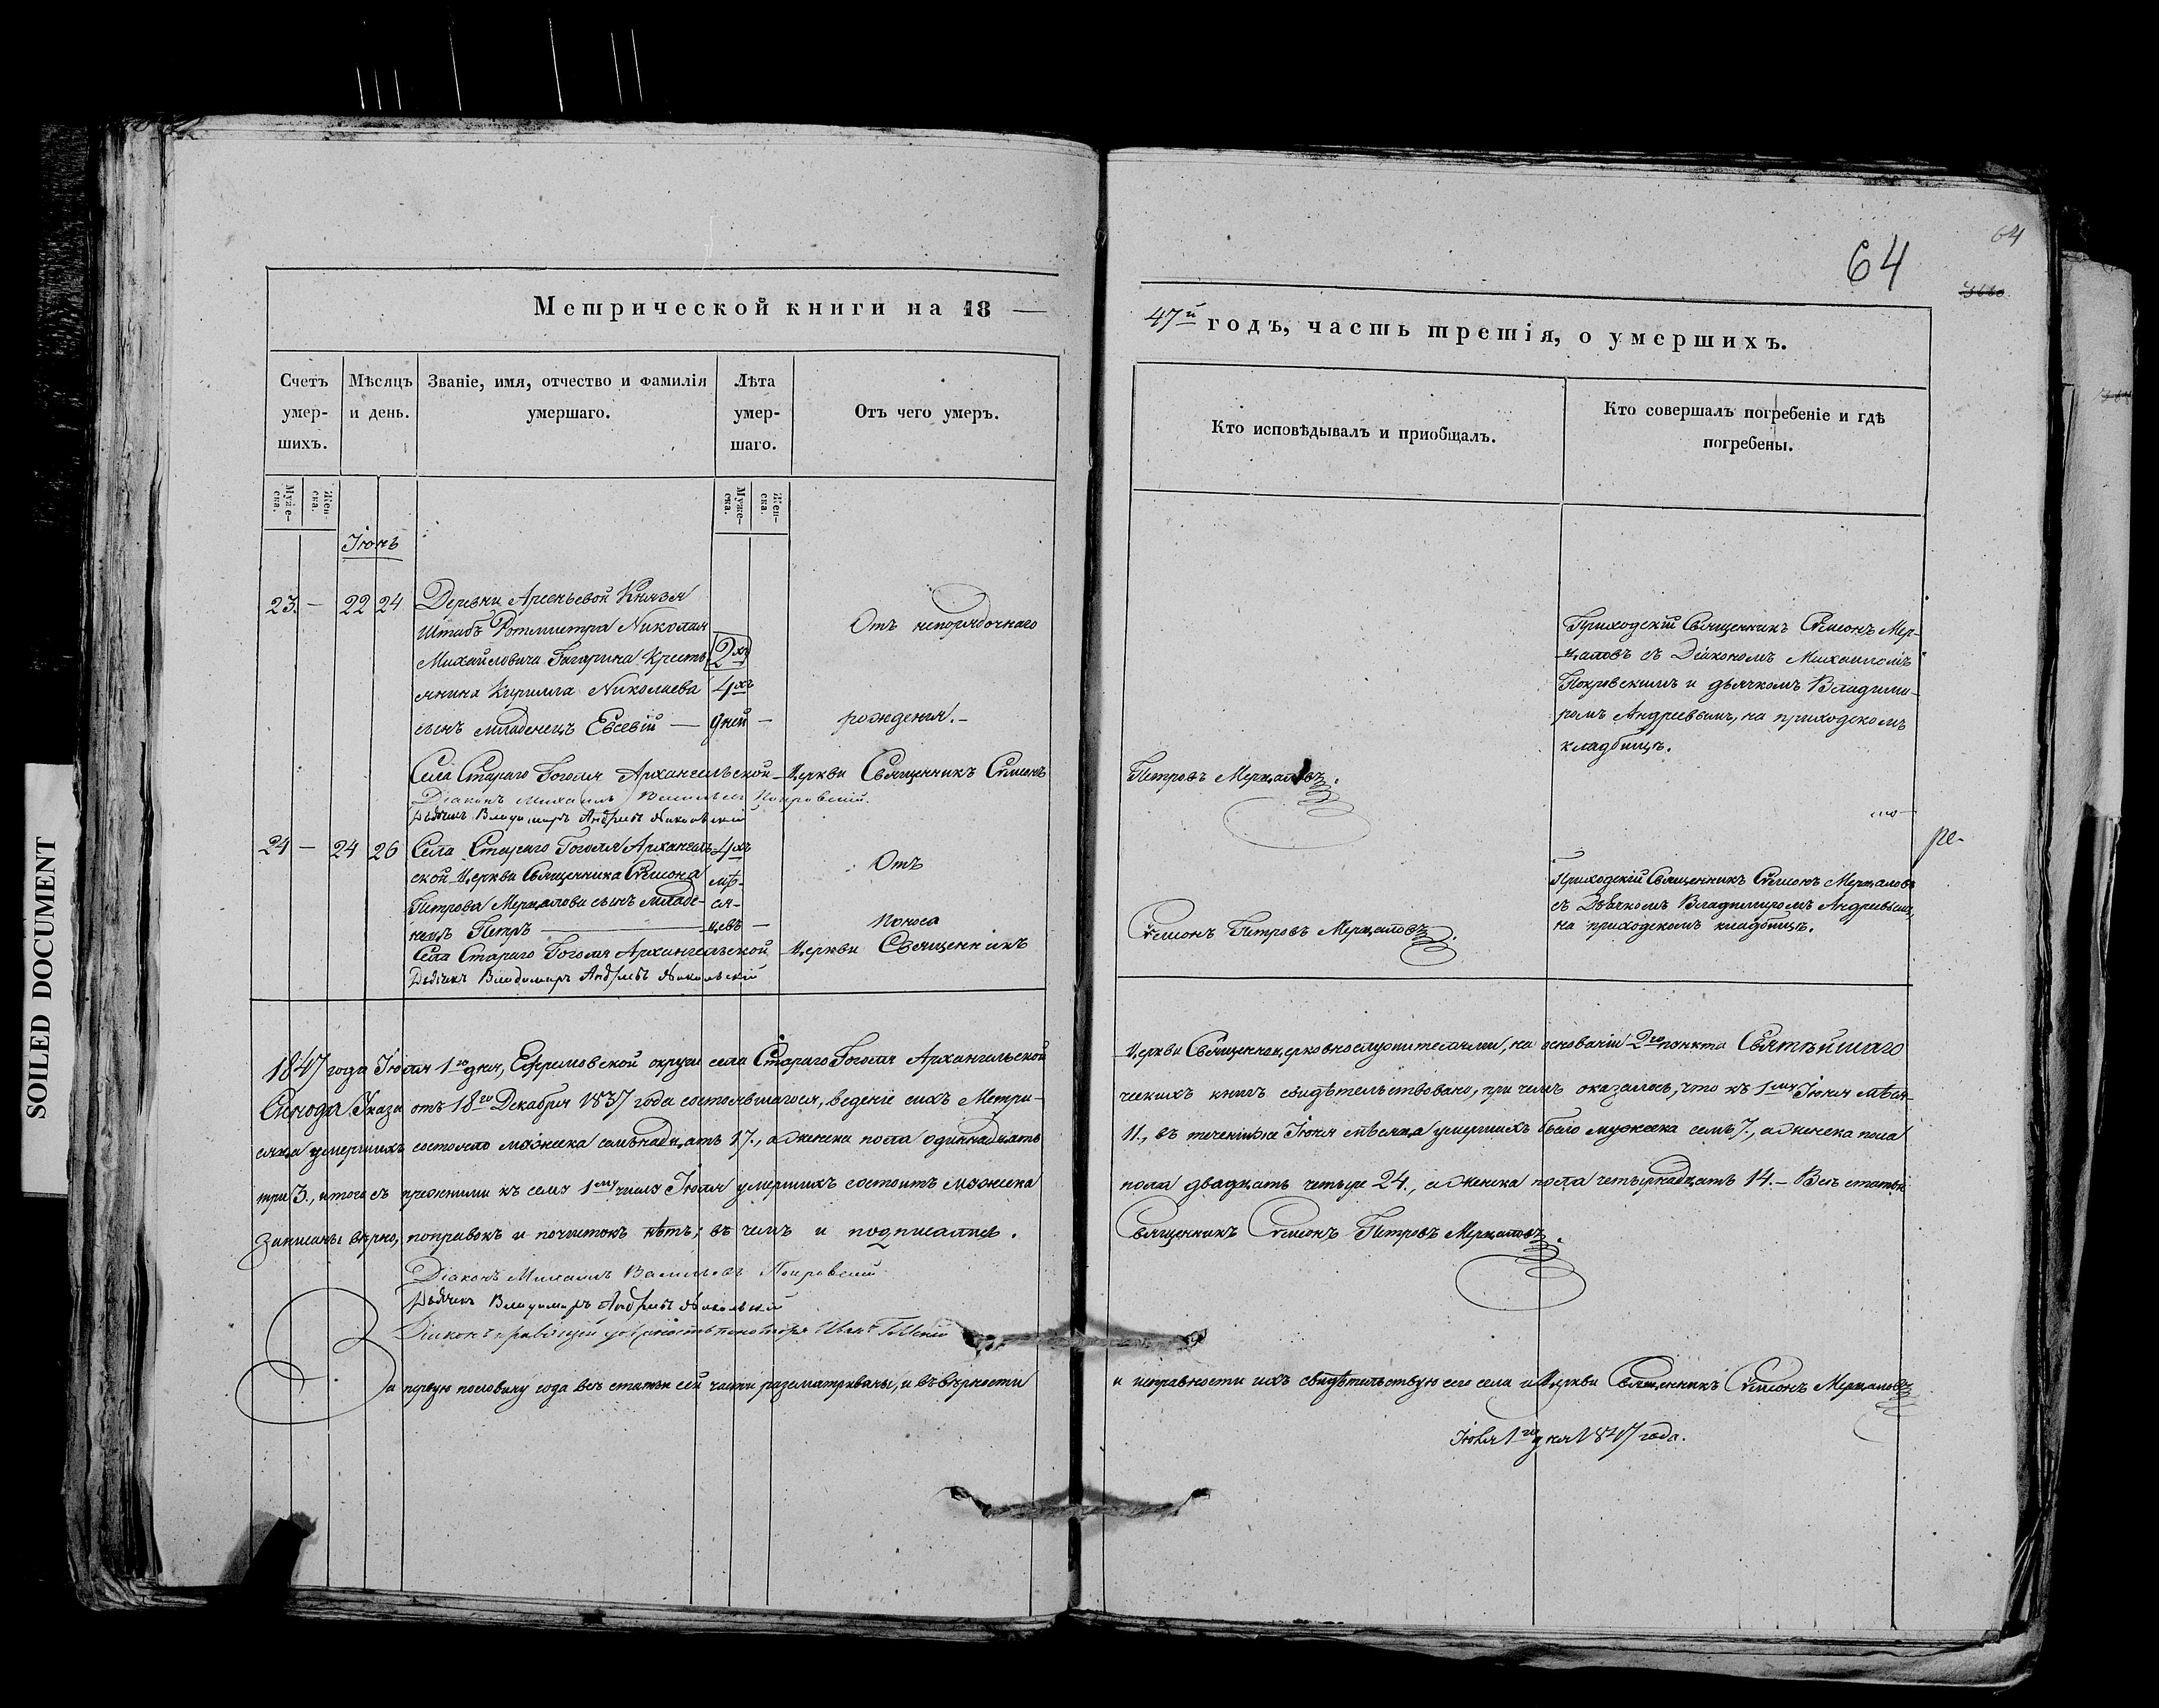 64
64
Метрической книги на 18 —
47й годъ, часть третія, о умершихъ.
Счетъ умер-шихъ.
Мѣсяцъ и день.
Званіе, имя, отчество и фамилія умершаго.
Лѣта умер-шаго.
Отъ чего умеръ.
Кто исповѣдывалъ и приобщалъ.
Кто совершалъ погребеніе и гдѣ погребены.
Муже-ска.
Жен-ска.
Муже-ска.
Жен-ска.
Іюнь
23. — 22 24 Деревни Арсеньевой Князя
Штабъ Ротмистра Николая
Михайловича Гагарина крестья
янина Кирилла Николаева
сынъ младенецъ Евсевій —
2хъ
4хъ
дней —
Отъ непорядочнаго
рожденія. —
Приходскій Священникъ Сѵмеонъ Мер-
цаловъ съ Діакономъ Михаиломъ
Покровскимъ и дьячкомъ Владими-
ромъ Андреевымъ, на приходскомъ
кладбищѣ.
Села Стараго Гоголя Архангельской Церкви Священникъ Сѵмеонъ Петровъ Мерцаловъ.
Діаконъ Михаилъ Васильевъ Покровскій.
Дьячекъ Владимиръ Андреевъ Никольскій
24 — 24 26 Села Стараго Гоголя Архангель
ской Церкви Священника Сѵмеона
Петрова Мерцалова сынъ младе-
нецъ Петръ —
4хъ
мѣ-
ся-
цевъ —
Отъ
поноса
Приходскій Священникъ Сѵмеонъ Мерцаловъ
съ Дьячкомъ Владимиромъ Андреевымъ,
на приходскомъ кладбищѣ.
Села Стараго Гоголя Архангельской Церкви Священникъ Сѵмеонъ Петровъ Мерцаловъ.
Дьячекъ Владимиръ Андреевъ Никольскій
1847 года Іюля 1го дня, Ефремовской округи села Стараго Гоголя Архангельской Церкви Священноцерковнослужителями, на основаніи 2го пункта Святѣйшаго
Синода Указа отъ 18го Декабря 1837 года состоявшагося, веденіе сихъ Метри-ческихъ книгъ свидѣтельствовано, при чемъ оказалось, что къ 1му Іюня мѣся-
сяца умершихъ состояло мужеска семьнадцать 17., а женска пола одиннадцать 11., въ теченіи же Іюня мѣсяца умершихъ было мужеска семь 7., а женска пола
три 3., итого съ прежними къ сему 1му числу Іюля умершихъ состоитъ мужеска пола двадцать четыре 24., а женска пола четырнадцать 14. — Всѣ статьи
записаны вѣрно, поправокъ и почистокъ нѣтъ; въ чемъ и подписались. Священникъ Сѵмеонъ Петровъ Мерцаловъ.
Діаконъ Михаилъ Васильевъ Покровскій
Дьячекъ Владимиръ Андреевъ Никольскій
Діаконъ правящій должность пономаря Иванъ
За первую половину года всѣ статьи сей части разсматриваны, и въ вѣрности и исправности ихъ свидѣтельствую сего села и Церкви Священникъ Сѵмеонъ Мерцаловъ
Іюля 1го дня 1847 года.
SOILED DOCUMENT